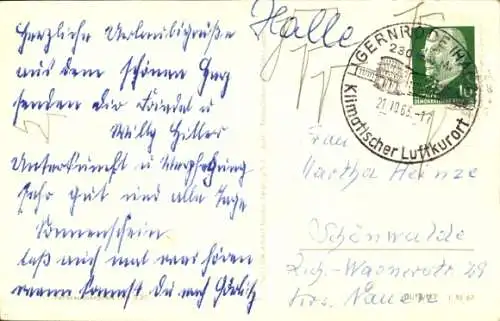 Herzliche Urlaubsgrüße
aus dem schönen Harz
senden Dir Friedel u
Willy Hitter
Unterkunft u Verpflegung
sehr gut und alle Tage
Sonnenschein.
laß auch mal was hören
wann kommst Du nach Görlitz
Halle
GERNRODE (HARZ)
21.10.63.-11
Klimatischer Luftkurort
10
Frau
Martha Heinze
Schönwalde
Rich.-Wagnerstr 29
Krs. Nauen